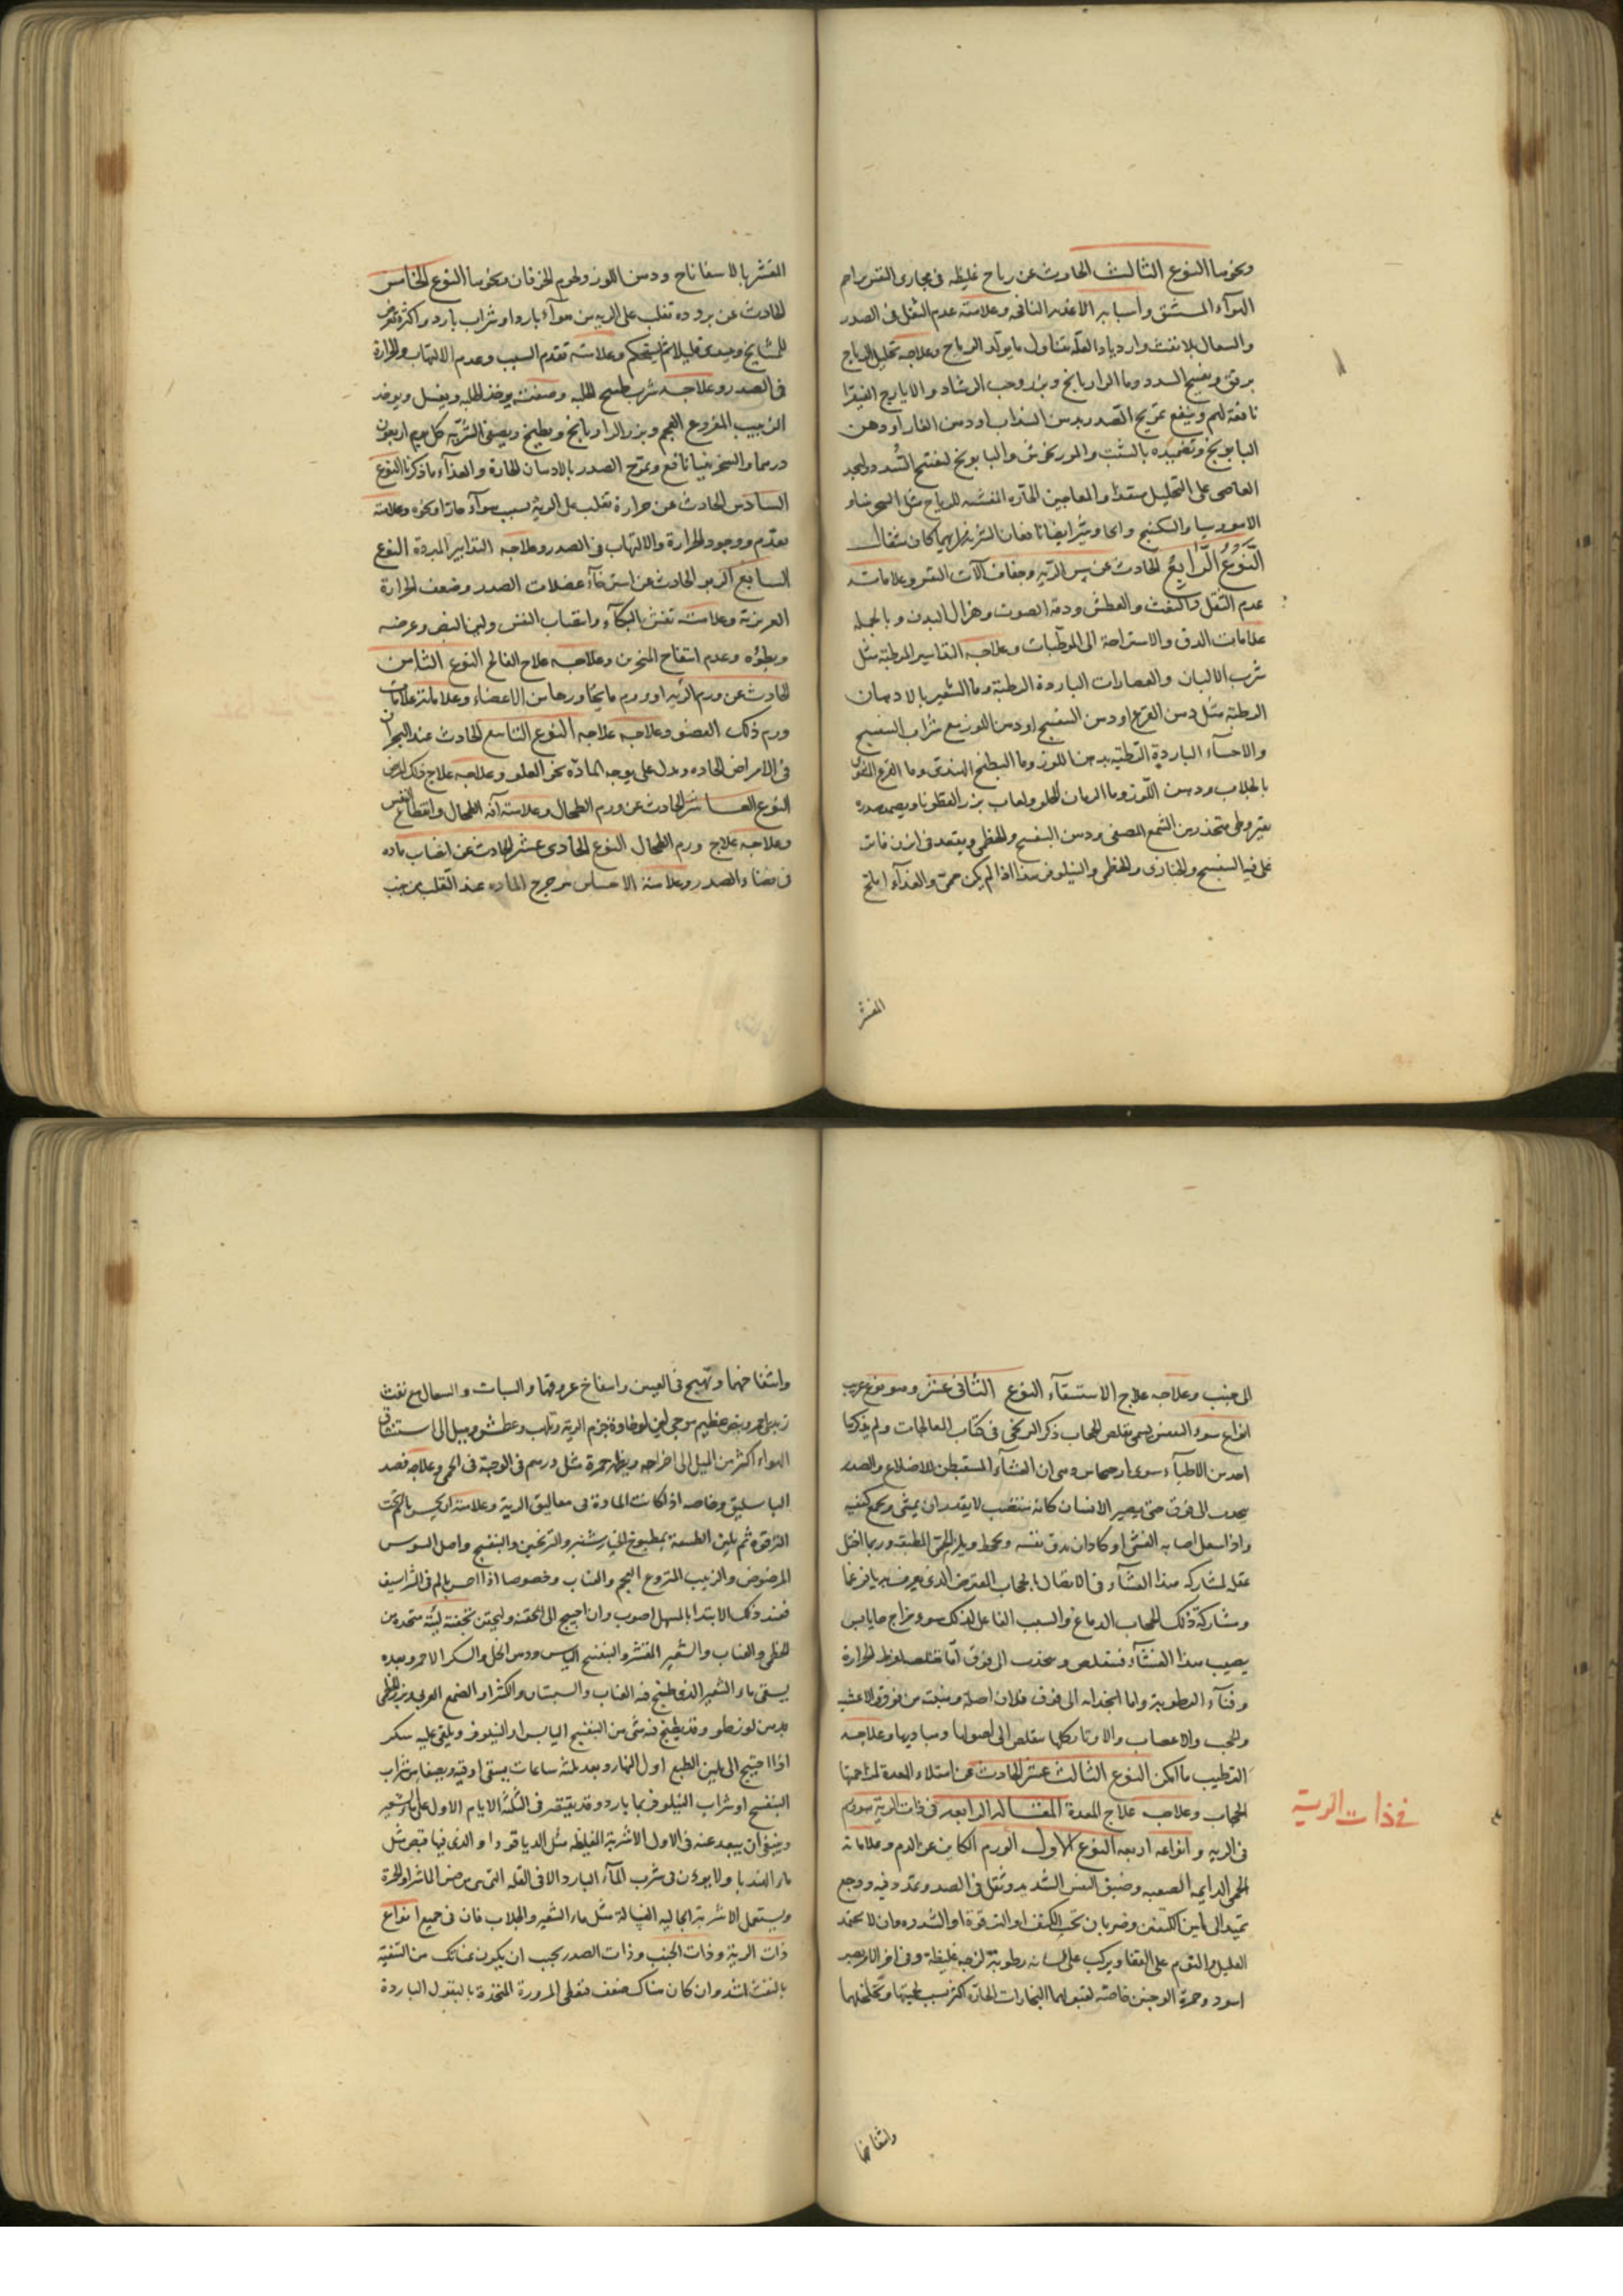 ونحوها النوع الثالث الحادث عن رياح غليظه فى مجارى النفس تزاحم
الهواء المستنشق واسبابه الاغذيه النافخه وعلامته عدم الثقل فى الصدر
والسعال بلا نفث وازدياد العلة بتناول ما يولد الرياح وعلاجه تحليل الرياح
برفق وتفتيح السدد وماء الرازيانج وبزره وحب الرشاد والايارج الفيقرا
نافعة لهم وينفع تمريخ الصدر بدهن السذاب او دهن الغار او دهن
البابونج وتضميده بالشبث والمرزنجوش والبابونج لتفتح السدد
العاصى على التحليل والمعاجين الحاره المفشه للرياح مثل السجزينا و
والسكبينج ايضا نافعان الشربة من ايهما كان مثقال
النوع الرابع الحادث عن يبس الريه وجفاف آلات النفس وعلاماته
عدم الثقل والنفث والعطش ودقة الصوت وهزال البدن وبالجمله
علامات الدق والاستراحة الى المرطبات وعلاجه التدابير المرطبة مثل
شرب الالبان والعصارات الباردة الرطبة وماء الشعير بالادهان
الرطبة مثل دهن القرع او دهن البنفسج او دهن اللوز مع شراب البنفسج
والاحساء الباردة الرطبة بدهن اللوز وماء البطيخ الهندى وماء القرع المشوى
بالجلاب ودهن اللوز وماء الرمان الحلو ولعاب بزر القطونا ويضمد صدره
بقيروطى متخذ من الشمع المصفى ودهن البنفسج والخطمى ويقعد فى ابزن فاتر
غلى فيه البنفسج والخبازى والخطمى والنيلوفر هذا اذا لم يكن حمى والغذاء
المقشر
المقشر بالاسفاناخ ودهن اللوز ولحوم الخرفان ونحوها النوع الخامس
الحادث عن بروده تغلب على الريه من هواء بارد او شراب بارد واكثره تعرض
للمشايخ ويبتدى قليلا ثم يستحكم وعلامته تقدم السبب وعدم الالتهاب والحرارة
فى الصدر وعلاجه شرب طبيخ الحلبه وصفته يوخذ الحلبه ويغسل ويوخذ
الزبيب المنزوع العجم وبزر الرازيانج ويطبخ ويصفى الشربة كل يوم اربعون
درهما والسجزينيا نافع وتمرخ الصدر بالادهان الحارة والغذاء ما ذكرنا النوع
السادس الحادث عن حرارة تغلب على الرية بسبب هواء حار او نحوه وعلامته
تقدمه ووجود الحرارة والالتهاب فى الصدر وعلاجه التدابير المبردة النوع
السابع الربو الحادث عن استرخاء عضلات الصدر وضعف الحرارة
الغريزية وعلامته تنفس بالبكاء وانتصاب النفس ولين النبض وعرضه
وبطؤه وعدم انتفاخ المنخرين وعلاجه علاج الفالج النوع الثامن
الحادث عن ورم الريه او ورم ما يجاورها من الاعضاء وعلاماته علامات
ورم ذلك العضو وعلاجه علاجه النوع التاسع الحادث عند البحران
فى الامراض الحاده ويدل على توجه الماده نحو العلو وعلاجه علاج ذلك المرض
النوع العاشر الحادث عن ورم الطحال وعلامته آفة الطحال وانقطاع النفس
وعلاجه علاج ورم الطحال النوع الحادى عشر الحادث عن انصباب ماده
فى فضاء الصدر وعلامته الاحساس بترجرج الماده عند التقلب من جنب
الى جنب وعلاجه علاج الاستسقاء النوع الثانى عشر وهو نوع غريب
انواع سوء التنفس يسمى تقلص الحجاب ذكر الترنجى فى كتاب المعالجات ولم يذكرها
احد من الاطباء سوى وهى ان الغشاء المستبطن للاضلاع والصدر
يجذب الى فوق حتى يصير الانسان كانه منتصب لا يقدر ان يمشى ويجمع كتفيه
واذا سعل اصابه الغشى او كاد ان يدق نفسه ويلزم الحمى المطبقه وربما اختل
عقله لمشاركة هذا الغشاء فى الاتصال بالحجاب المعترض الذى يعرف بديافرغما
ومشاركة ذلك الحجاب الدماغ والسبب الفاعل لذلك سوء مزاج حار يابس
يصيب هذا الغشاء فيتقلص وينجذب الى فوق اما تقلصه لفرط الحرارة
وفناء الرطوبة واما انجذابه الى فوق فلان اصله ومنبته من فوق والاغشيه
والحجب والاعصاب والاوتار كلها يتقلص الى اصولها ومباديها وعلاجه
الترطيب ما امكن النوع الثالث عشر الحادث عن امتلاء المعدة لمزاحمتها
الحجاب وعلاجه علاج المعدة المقاله الرابعه فى ذات الرية هو ورم
فى ذات الرية
فى الريه وانواعه اربعه النوع الاول الورم الكاين عن الدم وعلاماته
الحمى الدايمه الصعبه وضيق النفس الشديد وثقل فى الصدر وتمدد فيه ووجع
يمتد الى ما بين الكتفين وضربان تحت الكتف او الترقوة او الثدى وان لا يجد
العليل والنوم على القفا ويركب على لسانه رطوبة لزجه غليظة وفى اخر الامر يصير
اسود وحمرة الوجنتين خاصة لقبولهما البخارات الحارة اكثر بسبب لحميتها وتخلخلهما
وانتفاخهما
وانتفاخهما وتهيج فى العينين وانتفاخ عروقها والسبات والسعال مع نفث
زبدى احمر ونبض عظيم موجى لين لرخاوة جرم الرية وتلهب وعطش وميل الى استنشاق
الهواء اكثر من الميل الى اخراجه ويظهر حمرة مثل ورم فى الوجنة فى الحمى وعلاجه فصد
الباسليق وخاصه اذا كانت المادة فى معاليق الرية وعلامته ان يحس بالالم تحت
الترقوة ثم يلين الطبيعة بمطبوخ الخيارشنبر والترنجبين والبنفسج واصل السوس
المرضوض والزبيب المنزوع العجم والعناب وخصوصا اذا احس بالم فى الشراسيف
فعند ذلك الابتدا بالمسهل اصوب وان احتيج الى الحقنه وليحقن بحقنة لينة متخذه من
الخطمى والعناب والشعير المقشر والبنفسج اليابس ودهن الخل والسكر الاحمر وبعده
يسقى ماء الشعير الذى طبخ فيه العناب والسبستان والكثيرا والصمغ العربى وبزر الخطمى
بدهن لوز حلو وقد يطبخ فيه شئ من البنفسج اليابس او النيلوفر ويلقى عليه سكر
اذا احتيج الى تليين الطبع اول النهار وبعد ثلثة ساعات يسقى اوقية ونصف من شراب
البنفسج او شراب النيلوفر بماء بارد وقد يقتصر فى الثلثة الايام الاول على ماء الشعير
وينبغى ان يبعد عنه فى الاول الاشربة الغليظه مثل الدياقودا والذى فيها قبض مثل
ماء الهندبا ولا يوذن فى شرب الماء البارد الا فى العله التى هى من جنس الماشرا والحمرة
ويستعمل الاشربة الجاليه الغسالة مثل ماء الشعير والجلاب فان فى جميع انواع
ذات الرية وذات الجنب وذات الصدر يجب ان يكون عنايتك من التنقية
بالنفث اشد وان كان هناك ضعف فعلى المزورة المتخذة بالبقول الباردة